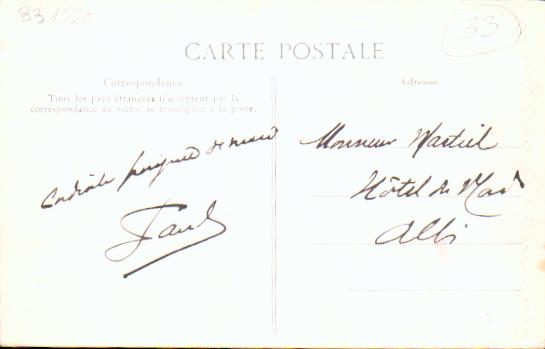 33 1520
33
CARTE POSTALE
Correspondance
Tous les pays étrangers n'acceptent pas la
correspondance au recto, se renseigner à la poste.
Adresse
Cordiale poignée de main
Monsieur
Hôtel du
Albi
33